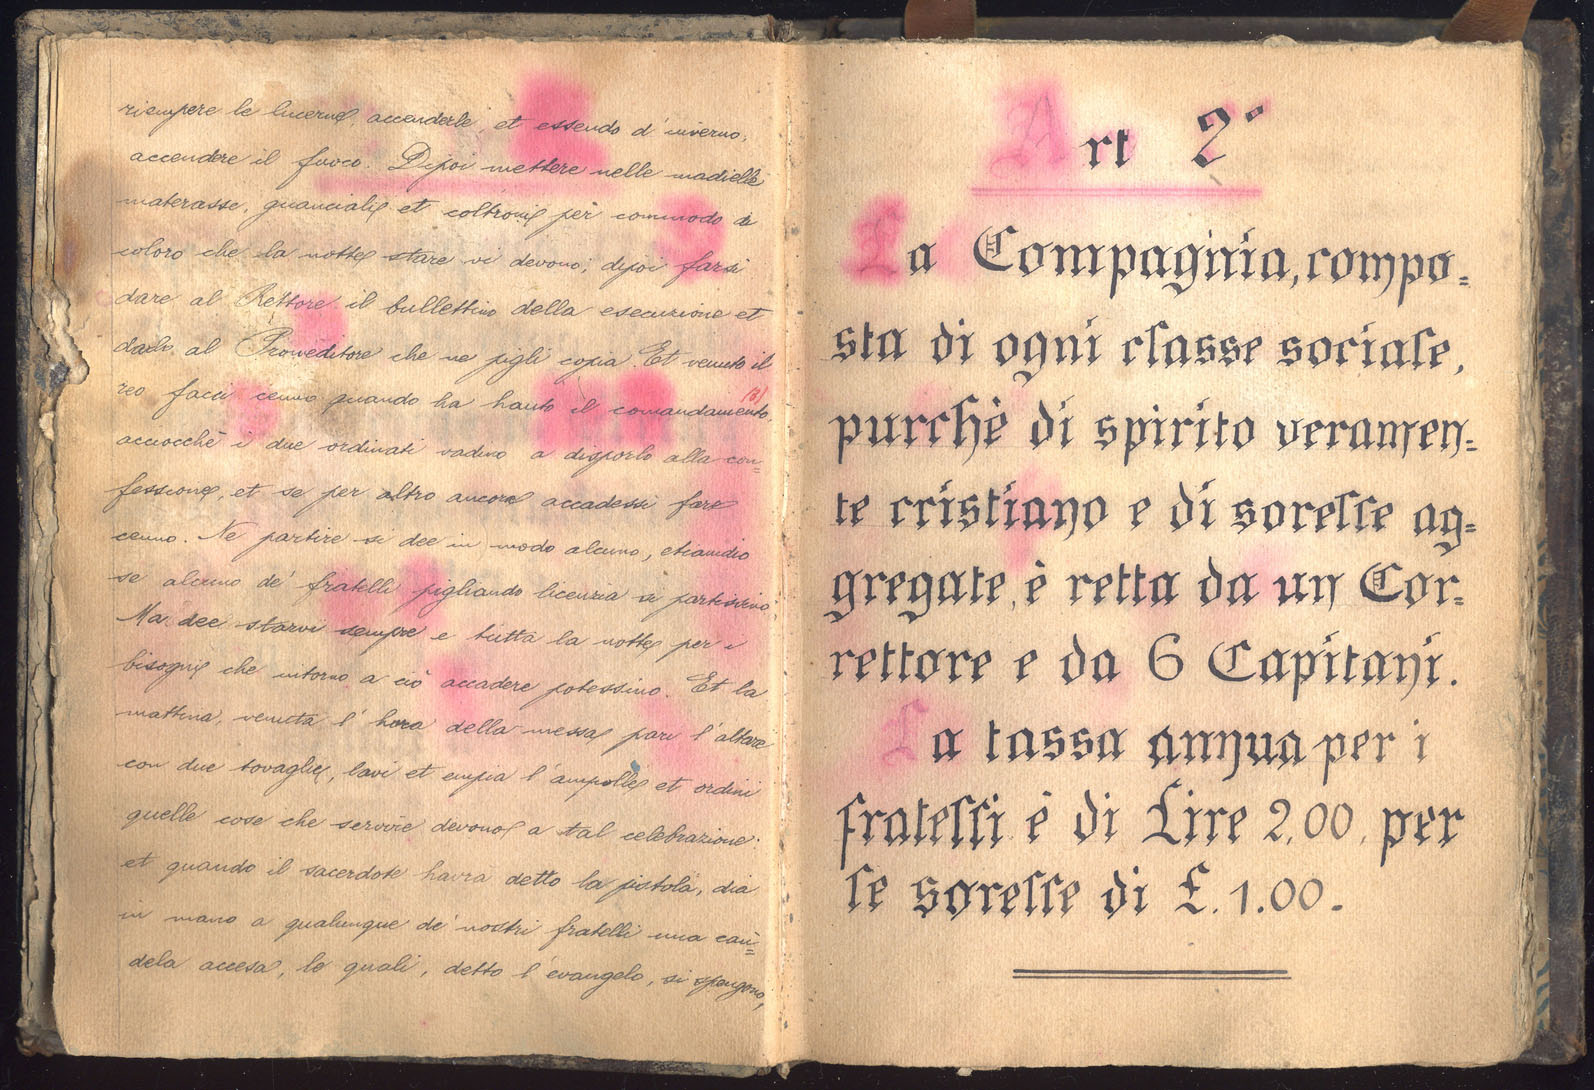 riempere le lucerne, accenderle, et essendo d' inverno,
accendere il fuoco. Dipoi mettere nelle madielle
materasse, guanciali et coltroni per commodo di
coloro che la notte stare vi devono; dipoi farsi
dare al Rettore il bullettino della esecuzione et
darlo al Proveditore che ne pigli copia. Et venuto il
reo facci cenno quando ha hauto il comandamento, (3)
acciocchè i due ordinati vadino a disporlo alla con=
fessione, et se per altro ancora accadessi fare
cenno. Ne partire si dee in modo alcuno, etiamdio
se alcuno de' fratelli pigliando licenzia si partissino
Ma dee starvi sempre e tutta la notte per i
bisogni che intorno a ciò accadere potessino. Et la
mattina, venuta l' hora della messa, pari l' altare
con due tovaglie, lavi et empia l' ampolle et ordini
quelle cose che servire devono a tal celebrazione.
et quando il sacerdote havrà detto la pistola, dia
in mano a qualunque de' nostri fratelli una can=
dela accesa, le quali, detto l' evangelo, si spengono,
Art 2°
La Compagnia, compo=
sta di ogni classe sociale,
purchè di spirito veramen=
te cristiano e di sorelle ag=
gregate, è retta da un Cor=
rettore e da 6 Capitani.
La tassa annua per i
fratelli è di Lire 2,00, per
le sorelle di £. 1.00.